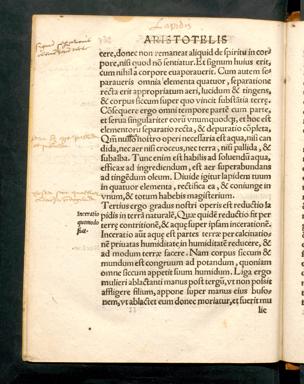 Lapidis
ARISTOTELIS
cere, donec non remaneat aliquid de spiritu in cor
pore, nisi quod nõ sentiatur. Et signum huius erit,
cum nihil a corpore euaporauerit. Cum autem se
paraueris omnia elementa quatuor, separatione
recta erit appropriatum aeri, lucidum & tingens,
& corpus siccum super quo vincit subtilitas terrę.
Cõsequere ergo omni tempore panẽ cum parte,
et serua singulariter eorũ vnumquodq;, et hoc est
elementorũ separatio recta, & depuratio cõpleta.
Qm̃ nusso nostro operi necessaria est aqua, nisi can
dida, nec aer nisi croceus, nec terra, nisi pallida, &
subalba. Tunc enim est habilis ad soluendũ aqua,
efficax ad ingrediendum, est aer superabundans
ad tingẽdum oleum. Diuide igitur lapidem tuum
in quatuor elementa, rectifica ea, & coniunge in
vnum, & totum habebis magisterium.
Tertius ergo gradus nostri operis est reductio la
pidis in terrã naturalẽ, Quæ quidẽ reductio fit per
terrę contritionẽ, & aquę super ipsam incerationẽ.
Inceratio aũt aquę est partes terræ per calcinatio
nẽ priuatas humiditate in humiditatẽ reducere, &
ad modum terræ facere. Nam corpus siccum &
mundum est congruum ad potandum, quoniam
omne siccum appetit suum humidum. Liga ergo
mulieri ablactanti manus post tergũ, vt non possit
affligere filium, appone super manus eius bufo-
nem, vt ablactet eum donec moriatur, et fuerit mu
lie
Inceratio
quomodo
fiat.